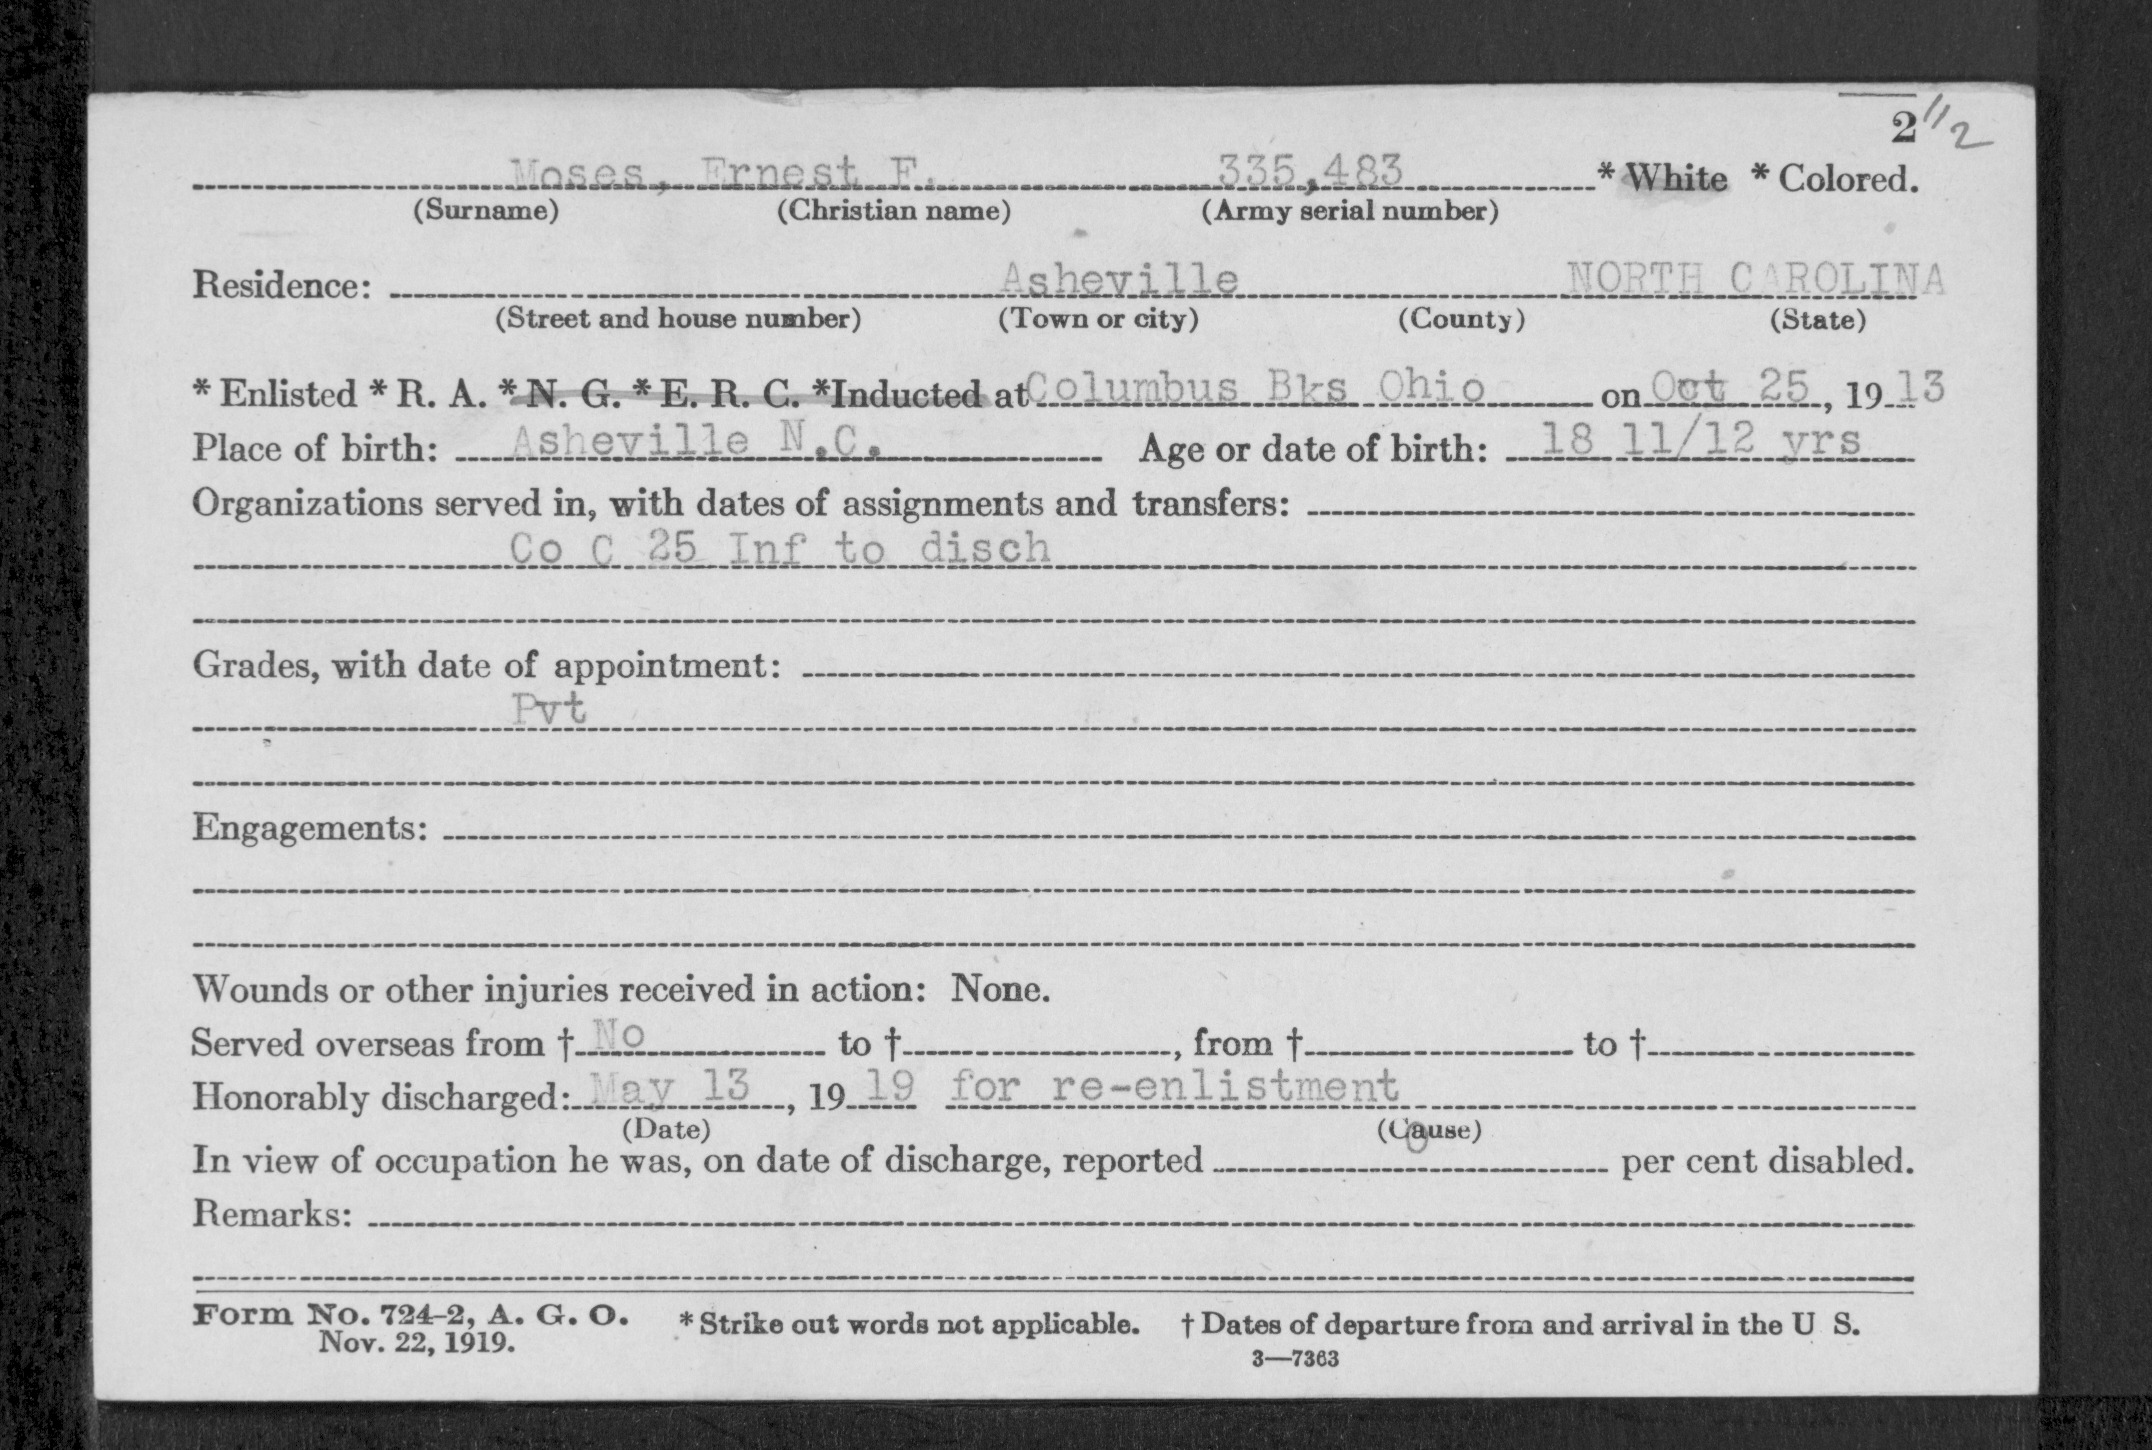 2 11/2
Moses, Ernest F. 335,483 * White * Colored.
(Surname) (Christian name) (Army serial number)
Residence: Asheville NORTH CAROLINA
(Street and house number) (Town or city) (County) (State)
* Enlisted * R. A. * N. G. * E. R. C. *Inducted at Columbus Bks Ohio on Oct 25, 19 13
Place of birth: Asheville N.C. Age or date of birth: 18 11/12 yrs
Organizations served in, with dates of assignments and transfers:
Co C 25 Inf to disch
Grades, with date of appointment:
Pvt
Engagements:
Wounds or other injuries received in action: None.
Served overseas from † No to †, from † to †
Honorably discharged: May 13, 19 19 for re-enlistment
(Date) (Cause)
In view of occupation he was, on date of discharge, reported 0 per cent disabled.
Remarks:
Form No. 724-2, A. G. O. * Strike out words not applicable. † Dates of departure from and arrival in the U S.
Nov. 22, 1919.
3—7363